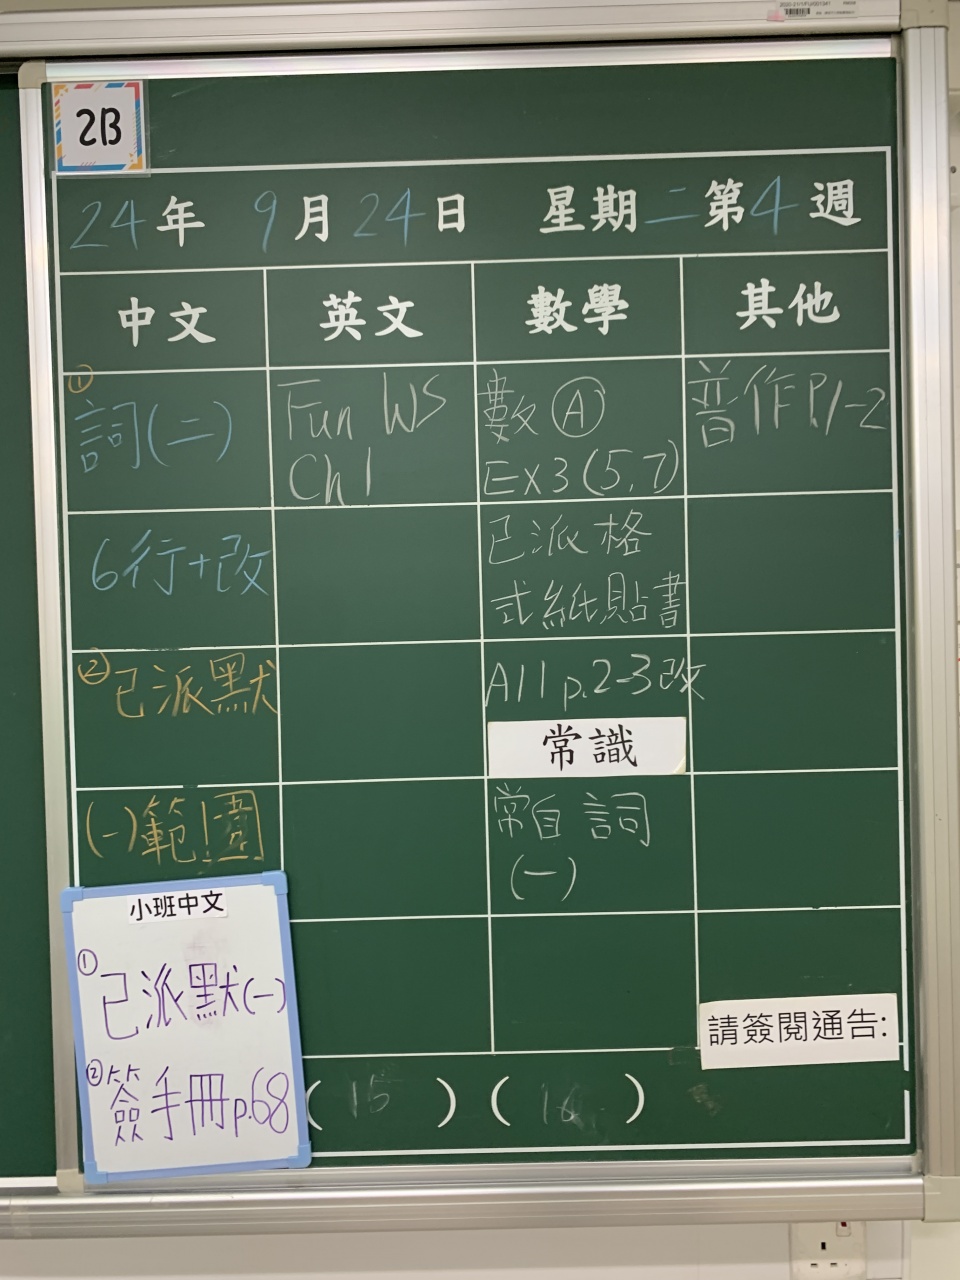 2B
24年 9月24日 星期二第4週
中文 英文 數學 其他
① 詞(二)
6行+改
② 已派默
(一)範圍
Fun WS
Ch 1
數 Ⓐ
Ex3(5,7)
已派格
式紙貼書
A11 p.2-3改
常識
常自 詞
(一)
普作P.1-2
小班中文
① 已派默(一)
② 簽手冊p.68
請簽閱通告:
( 15 ) ( 16 )